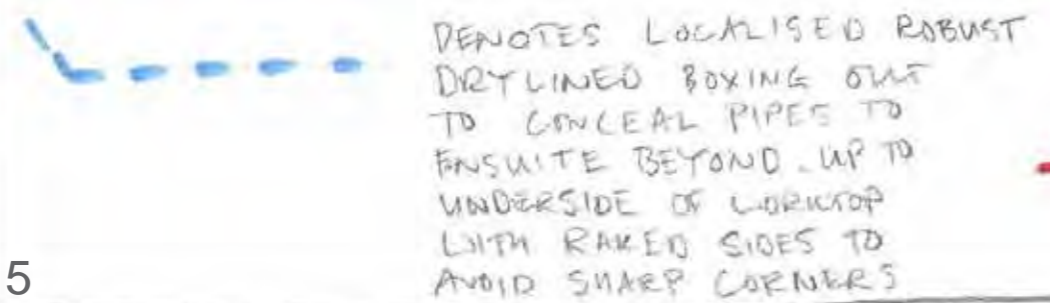 DENOTES LOCALISED ROBUST
DRYLINED BOXING OUT
TO CONCEAL PIPES TO
ENSUITE BEYOND. UP TO
UNDERSIDE OF WORKTOP
WITH RAKED SIDES TO
AVOID SHARP CORNERS
5